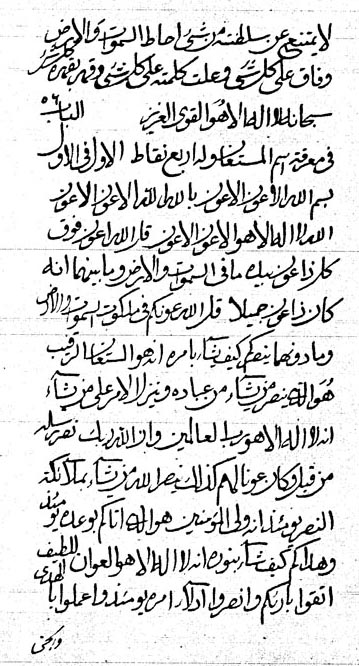 لا يمتنع عن سلطنته من شئ احاط السموات والارض
وفاق على كل شئ وعلت كلمته على كل شئ وقهر بقهره كل شئ
سبحانه لا اله الا هو القوى العزيز الباب
فى معرفة اسم المستعان وله اربع نقاط الاول فى الاول
بسم الله الاعون الاعون بالله الله الاعون الاعون
الله لا اله الا هو الاعون الاعون قل الله اعون فوق
كل ذا عون بيده ما فى السموات والارض وما بينهما انه
كان ذا عون جميلا قل الله عونكم فى ملكوت السموات والارض
وما دونهما ينصركم كيف يشاء بامره انه هو المستعان الرقيب
هو الذى ينصر من يشاء من عباده وينزل الامر على من يشاء
انه لا اله الا هو رب العالمين وان الله ربك نصر رسله
من قبل وكان عونا لهم كذلك ينصر الله من يشاء بملائكة
النصر يومئذ انه ولى المؤمنين هو الذى اتاكم بوعده يومئذ
وهداكم كيف شاء بنوره انه لا اله الا هو العوان اللطيف
اتقوا بارئكم وانصروا امره يومئذ واعملوا الهدى